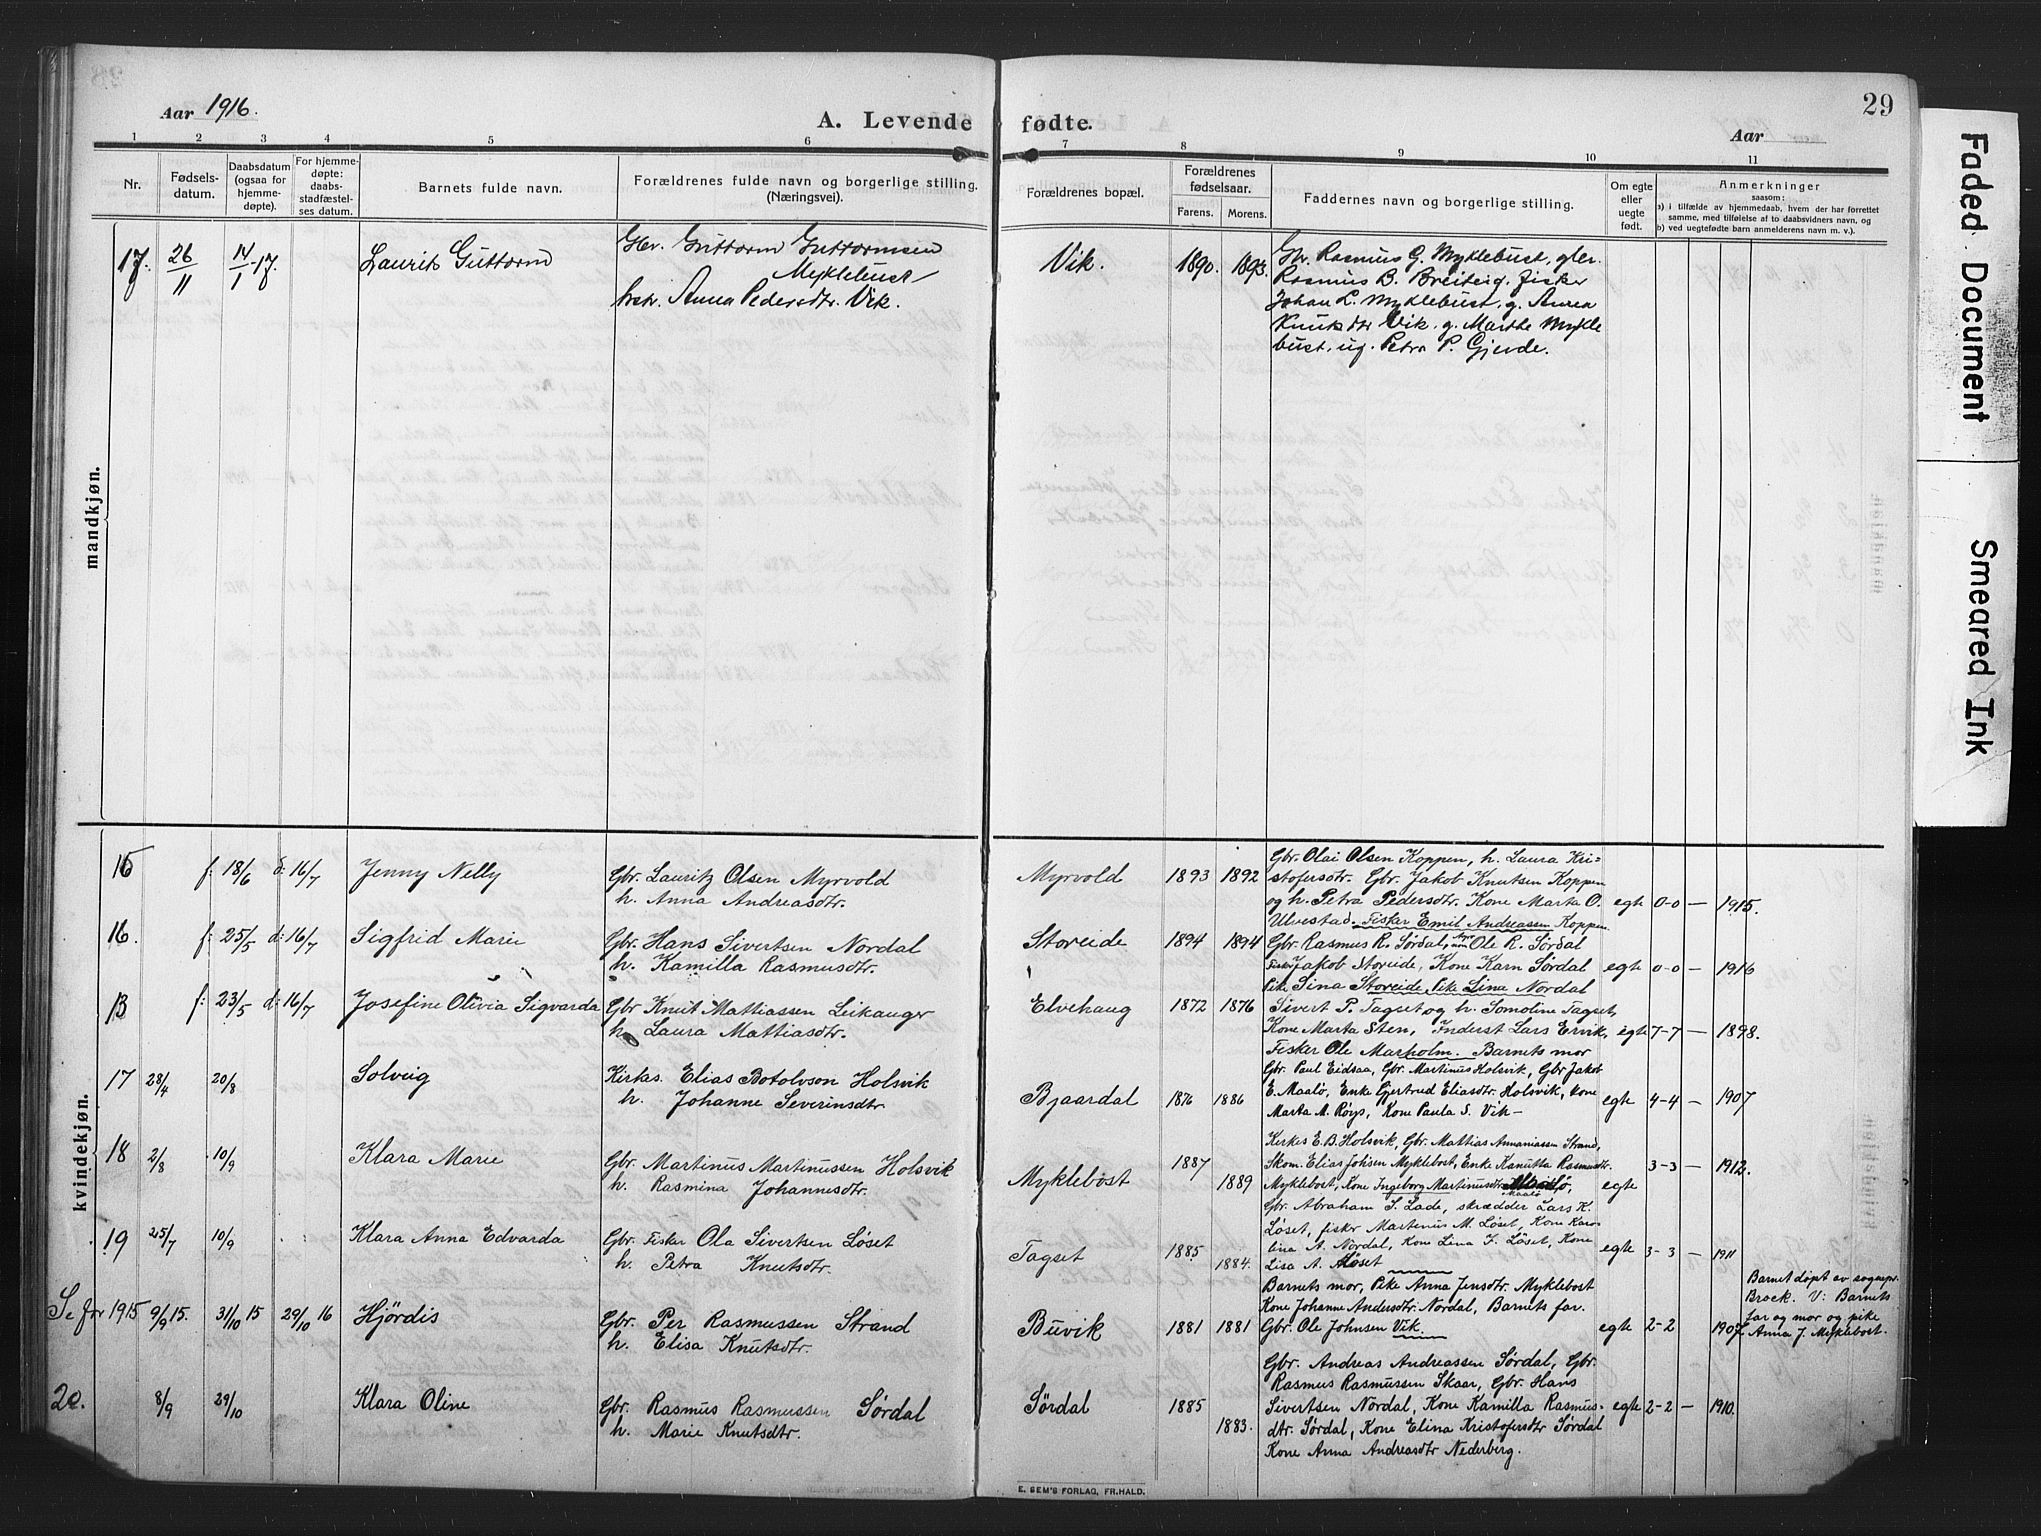 29
Aar 1916.
A. Levende fødte.
Aar
1 2 3 4 5 6 7 8 9 10 11
Nr.
Fødsels-
datum.
Daabsdatum
(ogsaa for
hjemme-
døpte).
For hjemme-
døpte:
daabs-
stadfæstel-
ses datum.
Barnets fulde navn.
Forældrenes fulde navn og borgerlige stilling.
(Næringsvei).
Forældrenes bopæl.
Forældrenes
fødselsaar.
Farens. Morens.
Faddernes navn og borgerlige stilling.
Om egte
eller
uegte
født.
Anmerkninger
saasom:
a) i tilfælde av hjemmedaab, hvem der har forrettet
samme, med tilføielse af to daabsvidners navn, og
b) ved uegtefødte barn anmelderens navn m. v.).
mandkjøn.
17. 26/11 14/1-17. Laurits Guttorm
Gbr. Guttorm Guttormsen
Myklebust
hstr. Anna Pedersdtr. Vik.
Vik. 1890. 1893.
Gbr. Rasmus G. Myklebust, gbr.
Rasmus B. Breiteig. Fisker
Johan L. Myklebust, g. Anna
Knutsdtr Vik. g. Marthe Mykle
bust, ug. Petra P. Gjerde.
kvindekjøn.
15 f. 18/6 d: 16/7 Jenny Nelly
Gbr. Lauritz Olsen Myrvold
h. Anna Andreasdtr.
Myrvold 1893 1892
Gbr. Olai Olsen Koppen, h. Laura Kri=
stofersdtr. Gbr. Jakob Knutsen Koppen
og h. Petra Pedersdtr. Kone Marta O.
Ulvestad. Fisker Emil Andreassen Koppen.
egte 0-0 — 1915.
16. f. 25/5 d: 16/7 Sigfrid Marie
Gbr. Hans Sivertsen Nordal
h. Kamilla Rasmusdtr.
Storeide 1894 1894
Gbr. Rasmus R. Sørdal, Ole R. Sørdal
Fisker Jakob Storeide, Kone Karn Sørdal
Pike Sina Storeide, Pike Line Nordal
egte 0-0 — 1916
13 f: 23/5 d: 16/7 Josefine Olivia Sigvarda
Gbr Knut Mattiassen Leikanger
h. Laura Mattiasdtr.
Elvehaug 1872 1876
Sivert P. Tagset og h. Somoline Tagset,
Kone Marta Sten, Inderst Lars Ervik,
Fisker Ole Marholm. Barnets mor
egte 7-7 — 1898.
17 28/4 20/8 Solveig
Kirkes. Elias Botolvson Holsvik
h. Johanne Severinsdtr.
Bjaardal 1876 1886
Gbr. Paul Eidsaa, Gbr. Martinus Holsvik, Gbr Jakob
E. Maalø, Enke Gjertrud Eliasdtr. Holsvik, Kone
Marta M. Røys, Kone Paula S. Vik —
egte 4-4 — 1907
18 2/8 10/9 Klara Marie
Gbr. Martinus Martinussen Holsvik
h. Rasmina Johannesdtr.
Myklebost 1887 1889
Kirkes E. B. Holsvik, Gbr. Mattias Annaniassen Strand,
Skom. Elias Johsen Myklebost, Enke Kanutta Rasmusdtr.
Myklebost, Kone Ingeborg Martinusdtr. Maalø,
egte 3-3 — 1912.
19 25/7 10/9 Klara Anna Edvarda
Gbr. Fisker Ola Sivertsen Løset
h. Petra Knutsdtr.
Tagset 1885 1884.
Gbr. Abraham S. Lade, skrædder Lars K.
Løset, fisker Martenus M. Løset, Kone Karo=
lina A. Nordal, Kone Lina J. Løset, Kone
Lisa A. Løset
egte 3-3 — 1911
Se for 1915 9/9 15. 31/10 15 29/10 16 Hjördis
Gbr. Per Rasmussen Strand
h. Elisa Knutsdtr.
Buvik 1881 1881
Barnets mor, Pike Anna Jensdtr. Myklebost
Kone Johanne Andersdtr. Nordal, Barnets far.
Gbr. Ole Johnsen Vik.
egte 2-2 1907.
Barnet døpt av sognepr.
Brock. V: Barnets
far og mor og pike
Anna J. Myklebost.
20. 8/9 29/10 Klara Oline
Gbr. Rasmus Rasmussen Sørdal
h. Marie Knutsdtr.
Sørdal 1885 1883.
Gbr. Andreas Andreassen Sørdal, Gbr.
Rasmus Rasmussen Skaar, Gbr. Hans
Sivertsen Nordal, Kone Kamilla Rasmus-
dtr. Sørdal, Kone Elina Kristofersdtr Sørdal
Kone Anna Andreasdtr Nederberg.
egte 2-2 — 1910.
E. SEM'S FORLAG, FR.HALD.
Faded Document
Smeared Ink